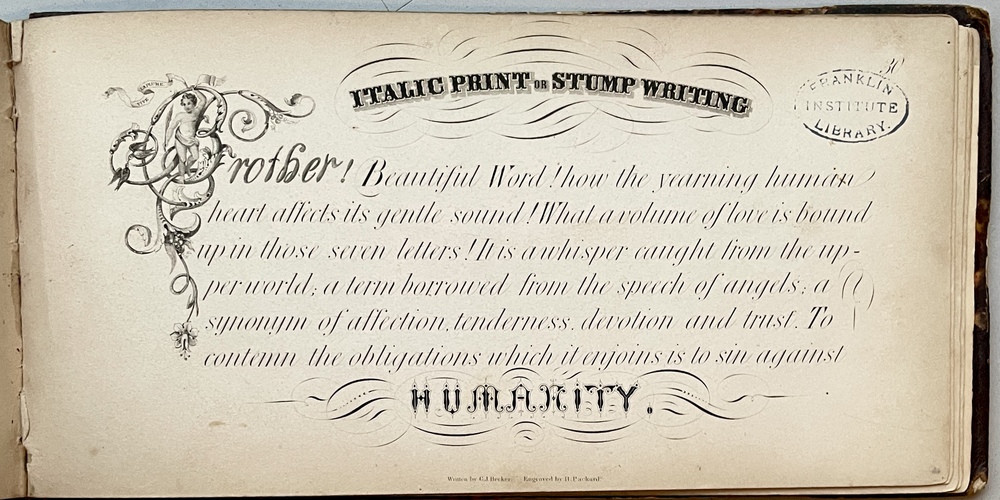 ITALIC PRINT OR STUMP WRITING
FRANKLIN
INSTITUTE
LIBRARY.
Brother! Beautiful Word! how the yearning human
heart affects its gentle sound! What a volume of love is bound
up in those seven letters! It is a whisper caught from the up-
per world; a term borrowed from the speech of angels; a
synonym of affection, tenderness, devotion and trust. To
contemn the obligations which it enjoins is to sin against
HUMANITY.
Written by G.J. Becker. Engraved by R. Packard